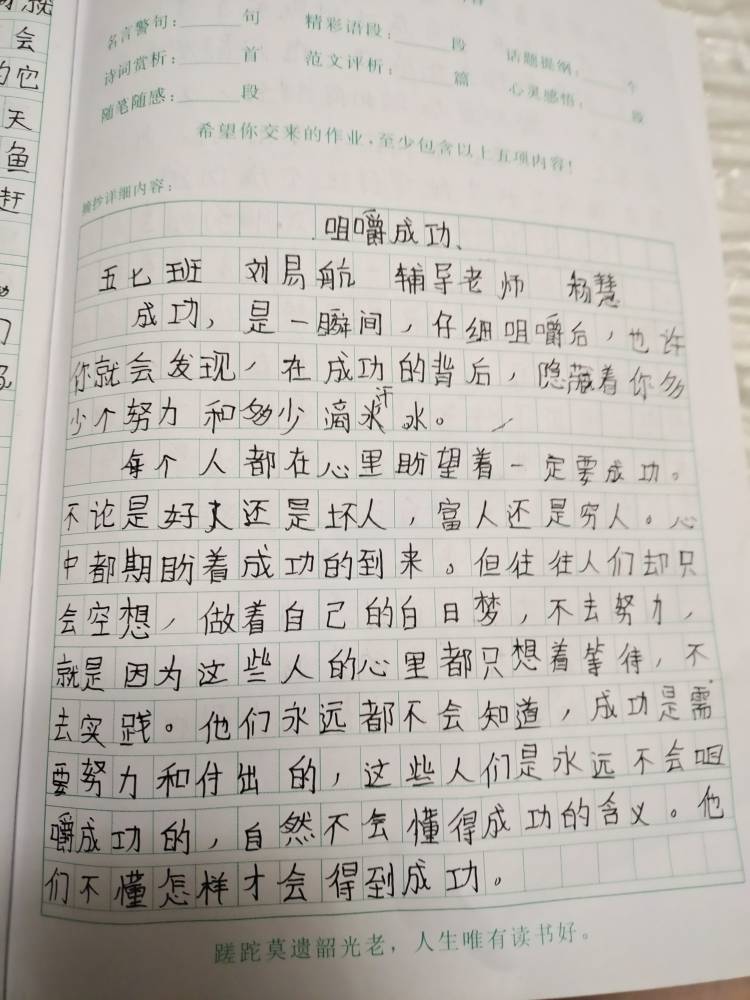 会
的它
天
鱼
赶
名言警句:______句 精彩语段:______段 话题提纲:______个
诗词赏析:______首 范文评析:______篇 心灵感悟:______段
随笔随感:______段
希望你交来的作业,至少包含以上五项内容!
摘抄详细内容:
咀嚼成功
五七班 刘易航 辅导老师 杨慧
成功，是一瞬间，仔细咀嚼后，也许
你就会发现，在成功的背后，隐藏着你多
少个努力和多少滴汗水。
每个人都在心里盼望着一定要成功。
不论是好人还是坏人，富人还是穷人。心
中都期盼着成功的到来。但往往人们却只
会空想，做着自己的白日梦，不去努力，
就是因为这些人的心里都只想着等待，不
去实践。他们永远都不会知道，成功是需
要努力和付出的，这些人们是永远不会咀
嚼成功的，自然不会懂得成功的含义。他
们不懂怎样才会得到成功。
蹉跎莫遗韶光老，人生唯有读书好。